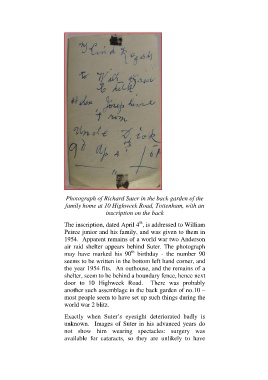 Kind Regards
to Will
Josephine
from
Uncle Dick
90
Photograph of Richard Suter in the back garden of the
family home at 10 Highweek Road, Tottenham, with an
inscription on the back
The inscription, dated April 4th, is addressed to William
Peirce junior and his family, and was given to them in
1954. Apparent remains of a world war two Anderson
air raid shelter appears behind Suter. The photograph
may have marked his 90th birthday - the number 90
seems to be written in the bottom left hand corner, and
the year 1954 fits. An outhouse, and the remains of a
shelter, seem to be behind a boundary fence, hence next
door to 10 Highweek Road. There was probably
another such assemblage in the back garden of no.10 –
most people seems to have set up such things during the
world war 2 blitz.
Exactly when Suter's eyesight deteriorated badly is
unknown. Images of Suter in his advanced years do
not show him wearing spectacles: surgery was
available for cataracts, so they are unlikely to have